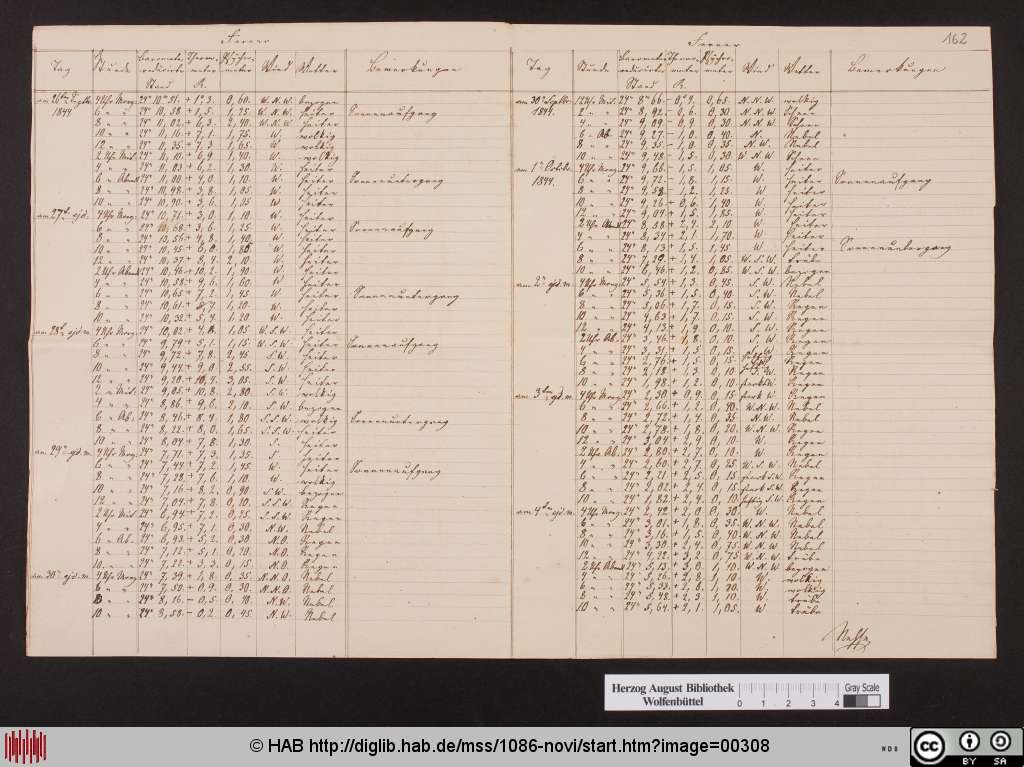 Ferner
Tag Stunde Baromet. reducirte Stand Therm. meter R. Hygro- meter Wind Wetter Bemerkungen
am 26ten Septbr. 4 Uhr Morg. 24" 10,51. + 1,3. 0,60. W.N.W. bezogen
1844. 6 " " 24" 10,58. + 1,5. 1,25. W.N.W. heiter Sonnenaufgang
8 " " 24" 11,02 + 6,3. 2,40. W.N.W. heiter
10 " " 24" 11,16 + 7,1. 1,75. W. wolkig
12 " " 24" 11,35 + 7,3. 1,65. W. wolkig
2 Uhr Mit. 24" 11,10. + 6,9. 1,40. W. wolkig
4 " " 24" 11,03 + 6,2. 1,30. W. heiter
6 " Abend 24" 11,00 + 4,0. 1,10. W. heiter Sonnenuntergang
8 " " 24" 10,98. + 3,8. 1,05. W. heiter
10 " " 24" 10,90. + 3,6. 1,05. W. heiter
am 27t. ejd. 4 Uhr Morg. 24" 10,71. + 3,0. 1,10. W. heiter
6 " " 24" 10,68. + 3,6. 1,25. W. heiter Sonnenaufgang
8 " " 24" 10,56 + 4,8. 1,40. W. heiter
10 " " 24" 10,45 + 6,0. 1,80. W. heiter
12 " " 24" 10,37 + 8,4. 2,10. W. heiter
2 Uhr Abend 24" 10,46 + 10,2. 1,90. W. heiter
4 " " 24" 10,58. + 9,6. 1,60. W. heiter
6 " " 24" 10,65 + 7,2. 1,45. W. heiter Sonnenuntergang
8 " " 24" 10,61 + 5,7. 1,20. W. heiter
10 " " 24" 10,32 + 5,4. 1,20. W. heiter
am 28t. ejd. m. 4 Uhr Morg. 24" 10,02 + 4,8. 1,05. W.S.W. heiter
6 " " 24" 9,79 + 5,1. 1,15. W.S.W. heiter Sonnenaufgang
8 " " 24" 9,72. + 7,8. 2,45. S.W. heiter
10 " " 24" 9,44. + 9,0. 2,55. S.W. heiter
12 " " 24" 9,20. + 10,4. 3,05. S.W. heiter
2 " Mit. 24" 9,05. + 10,8. 2,80. S.W. wolkig
4 " " 24" 8,86. + 9,6. 2,10. S.W. bezogen
6 " Ab. 24" 8,46. + 8,4. 1,80. S.S.W. wolkig Sonnenuntergang
8 " " 24" 8,22. + 8,0. 1,65. S.S.W. heiter
10 " " 24" 8,04 + 7,8. 1,30. S. heiter
am 29t. ejd. m. 4 Uhr Morg. 24" 7,71. + 7,3. 1,35. S. heiter
6 " " 24" 7,44. + 7,2. 1,45. W. heiter Sonnenaufgang
8 " " 24" 7,28. + 7,6. 1,10. W. wolkig
10 " " 24" 7,16 + 8,2. 0,90. S.W. bezogen
12 " " 24" 7,04. + 7,8. 0,20. S.S.W. Regen
2 Uhr Mit. 24" 6,94 + 7,2. 0,25. S.S.W. Regen
4 " " 24" 6,95. + 7,1. 0,30. N.W. Nebel
6 " Ab. 24" 6,93. + 5,2. 0,30. N.O. Regen
8 " " 24" 7,12. + 5,1. 0,20. N.O. Regen
10 " " 24" 7,22. + 3,3. 0,15. N.O. Regen
am 30t. ejd. m. 4 Uhr Morg. 24" 7,39. + 1,8. 0,35. N.N.O. Nebel
6 " " 24" 7,50. + 0,9. 0,30. N.N.O. Nebel
8 " " 24" 8,16. - 0,5. 0,40. N.W. Nebel
10 " " 24" 8,58. - 0,2. 0,45. N.W. Nebel
162
Ferner
Tag Stunde Baromet. reducirte Stand Thermo- meter R. Hygro- meter Wind Wetter Bemerkungen
am 30t. Septbr. 12 Uhr Mit. 24" 8,66. - 0,9. 0,65. N.N.W. wolkig
1844. 2 " " 24" 8,92. - 0,6. 0,30. N.N.W.
4 " " 24" 9,09 - 0,9. 0,30. N.N.W.
6 " Ab. 24" 9,27. - 1,0. 0,40. N. Nebel
8 " " 24" 9,35. - 1,0. 0,35. N.W. Nebel
10 " " 24" 9,48. - 1,5. 0,30. W.N.W.
am 1t. Octobr. 4 Uhr Morg. 24" 9,66. - 1,5. 1,05. W. heiter
1844. 6 " " 24" 9,72. - 1,8. 1,15. W. heiter Sonnenaufgang
8 " " 24" 9,52 - 1,2. 1,25. W. heiter
10 " " 24" 9,26 + 0,6. 1,40. W. heiter
12 " " 24" 9,04 + 1,5. 1,85. W. heiter
2 Uhr Abend 24" 8,58 + 2,4. 2,10. W. heiter
4 " " 24" 8,34 + 2,1. 1,70. W. heiter
6 " " 24" 8,13 + 1,5. 1,45. W. heiter Sonnenuntergang
8 " " 24" 7,29. + 1,4. 1,05. W.S.W. trübe
10 " " 24" 6,46. + 1,2. 0,85. W.S.W. bezogen
am 2t. ejd. m. 4 Uhr Morg. 24" 5,54 + 1,3. 0,45. S.W. Nebel
6 " " 24" 5,36 + 1,5. 0,40. S.W. Nebel
8 " " 24" 5,06 + 1,7. 0,15. S.W. Regen
10 " " 24" 4,63 + 1,7. 0,15. S.W. Regen
12 " " 24" 4,13 + 1,9. 0,10. S.W. Regen
2 Uhr Ab. 24" 3,46 + 1,8. 0,10. S.W. Regen
" " 24" 3,31. + 1,5. 0,15. Regen
6 " " 24" 2,76. + 1,5. 0,15. Regen
8 " " 24" 2,18 + 1,3. 0,10. S.W. Regen
10 " " 24" 1,98. + 1,2. 0,10. stark W. Regen
am 3ten ejd. m. 4 Uhr Morg. 24" 2,30 + 0,9. 0,15. stark W. Regen
6 " " 24" 2,66. + 1,2. 0,40. W.N.W. Nebel
8 " " 24" 2,72. + 1,4. 0,35. N.W. Nebel
10 " " 24" 2,78. + 1,8. 0,20. W.N.W. Regen
12 " " 24" 3,04. + 2,9. 0,10. W. Regen
2 Uhr Ab. 24" 2,80 + 2,7. 0,10. W. Regen
4 " " 24" 2,60. + 2,7. 0,25. W.S.W. Nebel
6 " " 24" 2,21. + 2,5. 0,15. stark S.W. Regen
8 " " 24" 2,02. + 2,4. 0,15. stark S.W. Regen
10 " " 24" 1,82. + 2,4. 0,10. heftig S.W. Regen
am 4ten ejd. m. 4 Uhr Morg. 24" 2,42 + 2,0. 0,30. W. Nebel
6 " " 24" 3,01. + 1,8. 0,35. W.N.W. Nebel
8 " " 24" 3,16. + 1,5. 0,40. W.N.W. Nebel
10 " " 24" 3,30. + 2,4. 0,75. W.N.W. Nebel
12 " " 24" 4,22. + 3,2. 0,75. W.N.W. trübe
2 Uhr Abend 24" 5,13. + 3,0. 1,10. W.N.W. bezogen
4 " " 24" 5,26. + 2,8. 1,10. W. wolkig
6 " " 24" 5,33. + 2,8. 1,20. W. wolkig
8 " " 24" 5,48. + 2,3. 1,10. W. trübe
10 " " 24" 5,64. + 2,1. 1,05. W. trübe
Herzog August Bibliothek
Wolfenbüttel
0 1 2 3 4
Gray Scale
© HAB http://diglib.hab.de/mss/1086-novi/start.htm?image=00308
cc BY SA